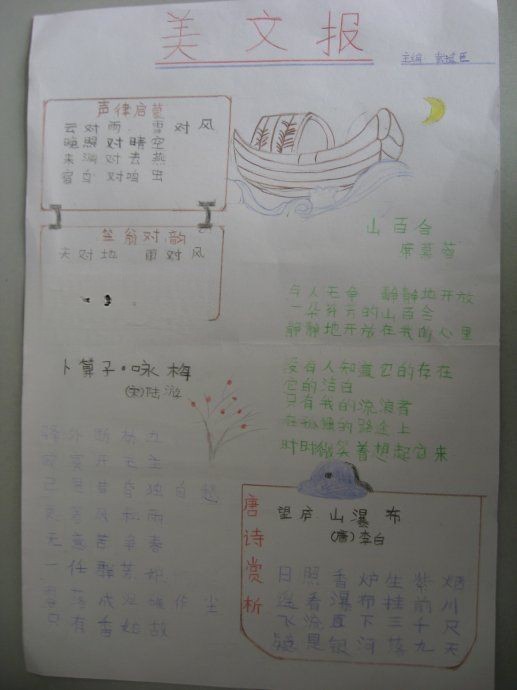 美文报
主编
声律启蒙
云对雨 雪对风
晚照对晴空
来鸿对去燕
宿鸟对鸣虫
笠翁对韵
天对地 雨对风
山百合
席慕蓉
与人无争 静静地开放
一朵芬芳的山百合
静静地开放在我的心里
没有人知道它的存在
它的洁白
只有我的流浪者
在孤独的路途上
时时微笑着想起它来
卜算子·咏梅
(宋)陆游
驿外断桥边
寂寞开无主
已是黄昏独自愁
更著风和雨
无意苦争春
一任群芳妒
零落成泥碾作尘
只有香如故
唐诗赏析
望庐山瀑布
(唐)李白
日照香炉生紫烟
遥看瀑布挂前川
飞流直下三千尺
疑是银河落九天